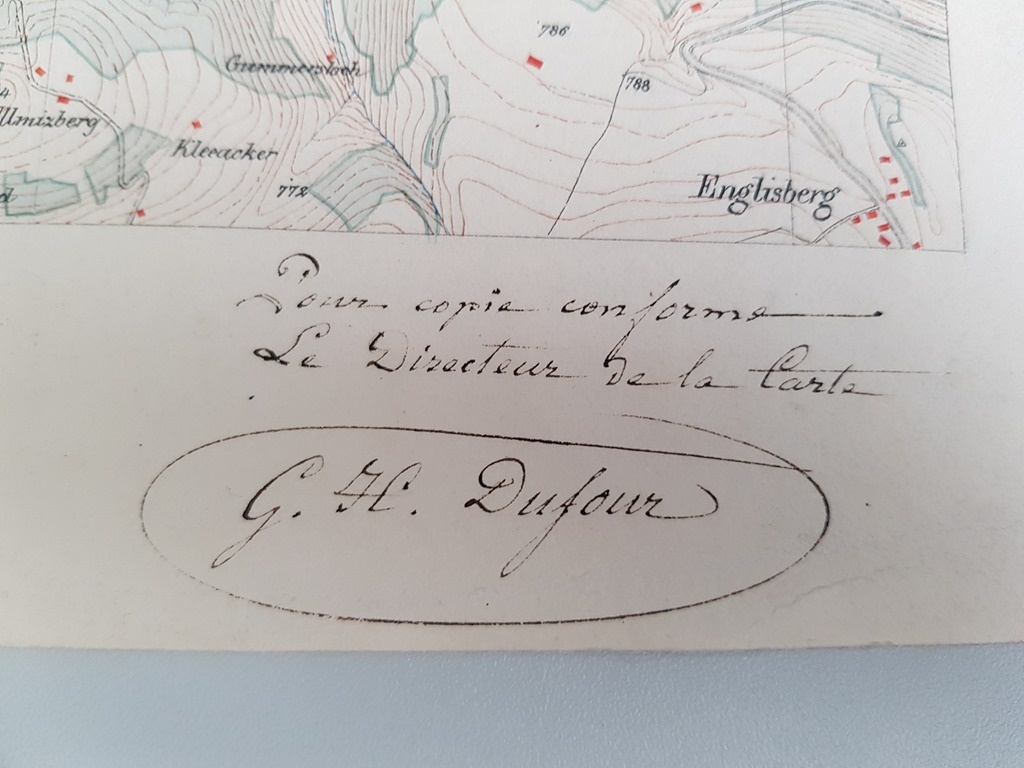 786
Gummersloch
788
Ulmizberg
Kleeacker
772
Englisberg
Pour copie conforme
Le Directeur de la Carte
G. H. Dufour